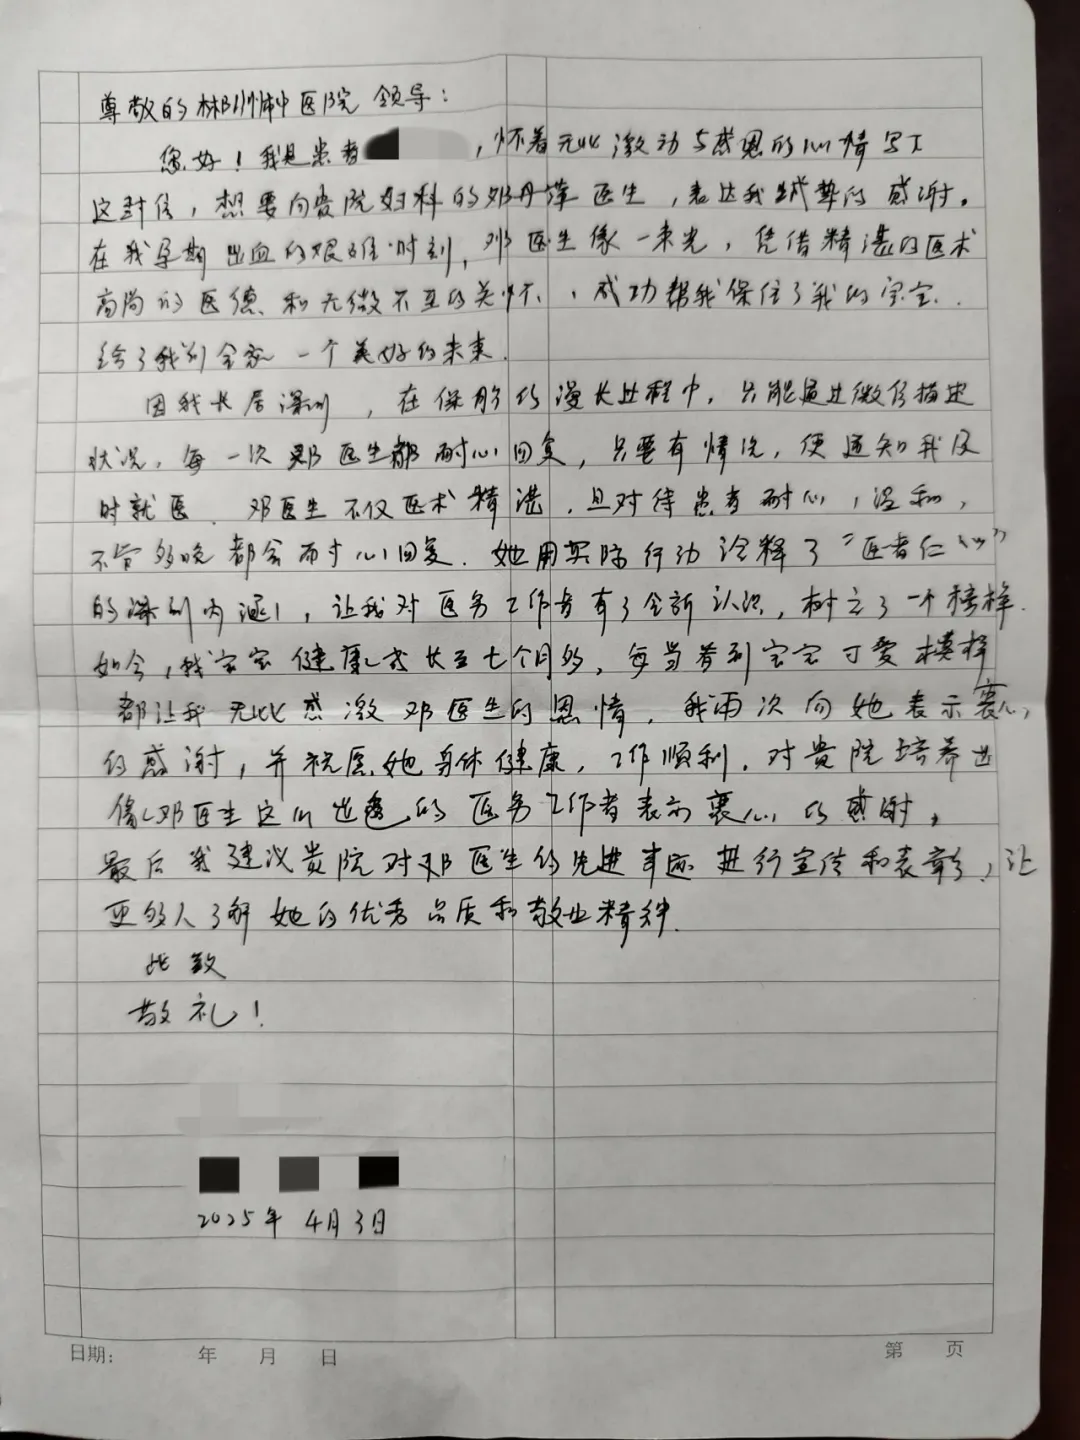 尊敬的郴州中医院领导：
您好！我是患者，怀着无比激动与感恩的心情写下
这封信，想要向贵院妇科的邓丹萍医生，表达我诚挚的感谢。
在我孕期出血的艰难时刻，邓医生像一束光，凭借精湛的医术
高尚的医德、和无微不至的关怀、，成功帮我保住了我的宝宝.
给了我们全家一个美好的未来.
因我长居深圳，在保胎的漫长过程中，只能通过微信描述
状况，每一次邓医生都耐心回复，只要有情况，便通知我及
时就医．邓医生不仅医术精湛．且对待患者耐心，温和，
不管多晚都会耐心回复．她用实际行动诠释了“医者仁心”
的深刻内涵，让我对医务工作者有了全新认识，树立了一个榜样.
如今，我宝宝健康成长至七个月多，每当看到宝宝可爱模样
都让我无比感激邓医生的恩情．我再次向她表示衷心
的感谢，并祝愿她身体健康，工作顺利．对贵院培养出
像邓医生这么出色的医务工作者表示衷心的感谢，
最后我建议贵院对邓医生的先进事迹进行宣传和表彰，让
更多人了解她的优秀品质和敬业精神.
此致
敬礼！
2025年4月3日
日期： 年 月 日 第 页